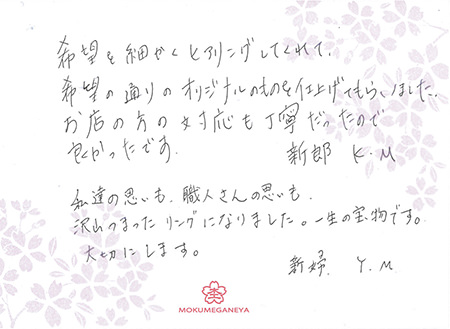 希望を細かくヒアリングしてくれて、
希望の通りのオリジナルのものを仕上げてもらいました。
お店の方の対応も丁寧だったので
良かったです。 新郎 K.M
私達の思いも、職人さんの思いも、
沢山つまったリングになりました。一生の宝物です。
大切にします。
新婦 Y.M
MOKUMEGANEYA